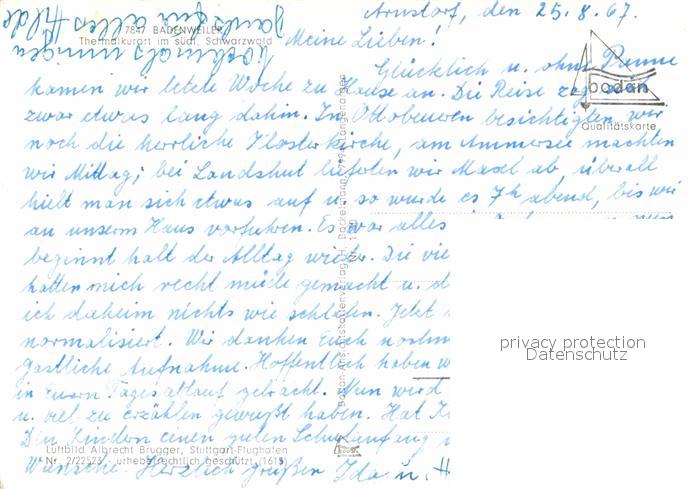 7847 BADENWEILER
Thermalkurort im südl. Schwarzwald
Nochmals innigen
Dank für alles Hilde
Arnstorf, den 25.8.67.
Meine Lieben!
Glücklich u. ohne Panne
kamen wir letzte Woche zu Hause an. Die Reise zog sich
zwar etwas lang dahin. In Ottobeuren besichtigten wir
noch die herrliche Klosterkirche, am Ammersee machten
wir Mittag; bei Landshut lieferten wir Maxl ab, überall
hielt man sich etwas auf u. so wurde es 7h abend, bis wir
an unserm Haus vorfuhren. Es war alles
beginnt halt der Alltag wieder. Die vie
hatten mich recht müde gemacht u. d
ich daheim nichts wie schlafen. Jetzt
normalisiert. Wir danken Euch nochm
gastliche Aufnahme. Hoffentlich haben w
in euren Tagesablauf gebracht. Nun wird
u. viel zu erzählen gewußt haben. Hat
Den Kindern einen guten Schulanfang
Wünsche. Herzlich grüßen Ida u. H
bodan
Qualitätskarte
privacy protection
Datenschutz
Luftbild Albrecht Brugger, Stuttgart-Flughafen
Nr. 2/22523 - urheberrechtlich geschützt (1615)